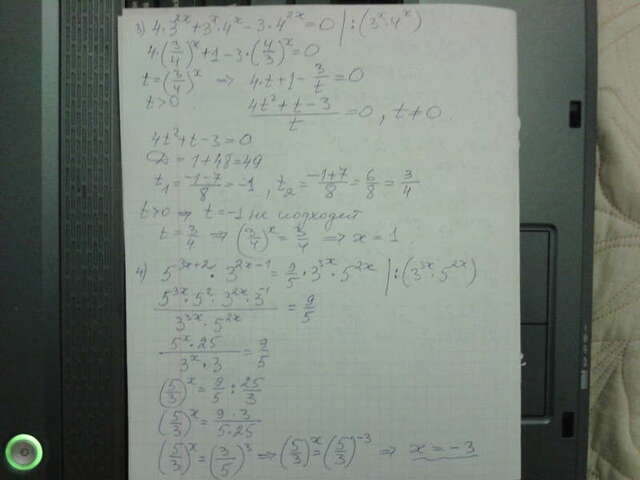 3) 4·3^{2x}+3^x·4^x-3·4^{2x}=0 |:(3^x4^x)
4·(3/4)^x+1-3·(4/3)^x=0
t=(3/4)^x ⇒ 4t+1-3/t=0
t>0 (4t²+t-3)/t=0, t≠0.
4t²+t-3=0
D=1+48=49
t₁=(-1-7)/8=-1, t₂=(-1+7)/8=6/8=3/4
t>0 ⇒ t=-1 не подходит
t=3/4 ⇒ (3/4)^x=3/4 ⇒ x=1
4) 5^{3x+2}·3^{2x-1}=9/5·3^{3x}·5^{2x} |:(3^{3x}·5^{2x})
(5^{3x}·5²·3^{2x}·3^{-1})/(3^{3x}·5^{2x})=9/5
(5^x·25)/(3^x·3)=9/5
(5/3)^x=9/5:25/3
(5/3)^x=(9·3)/(5·25)
(5/3)^x=(3/5)^3 ⇒ (5/3)^x=(5/3)^{-3} ⇒ x=-3